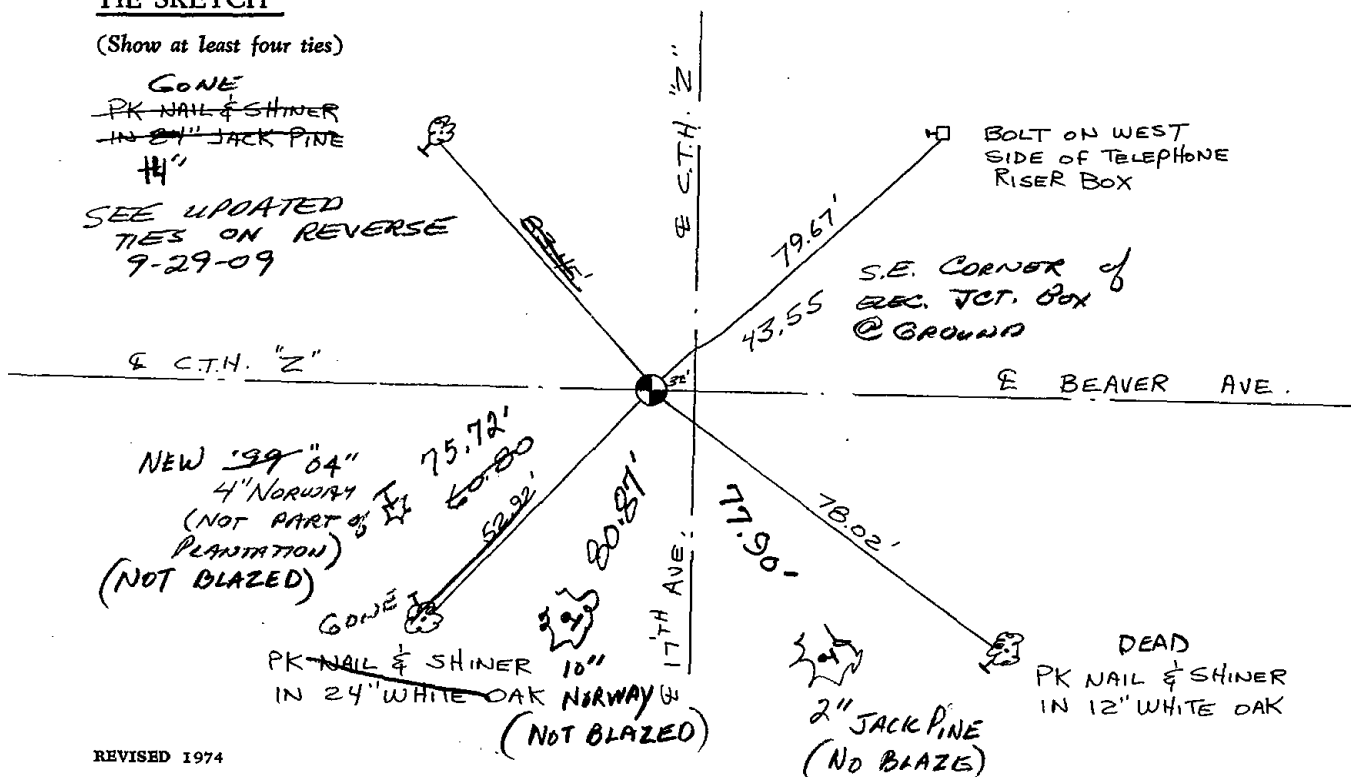 TIE SKETCH
(Show at least four ties)
GONE
PK NAIL & SHINER
IN 24" JACK PINE
14"
SEE UPDATED
TIES ON REVERSE
9-29-09
83.45'
℄ C.T.H. "Z"
79.67'
BOLT ON WEST
SIDE OF TELEPHONE
RISER BOX
43.55
S.E. CORNER of
ELEC. JCT. BOX
@ GROUND
℄ C.T.H. "Z"
℄ BEAVER AVE.
NEW '99 "04"
4" NORWAY
(NOT PART of
PLANTATION)
(NOT BLAZED)
75.72'
60.80
52.92'
80.87'
℄ 17TH AVE.
77.90'
78.02'
GONE
PK NAIL & SHINER
IN 24" WHITE OAK
10"
NORWAY
(NOT BLAZED)
2" JACK PINE
(NO BLAZE)
DEAD
PK NAIL & SHINER
IN 12" WHITE OAK
REVISED 1974